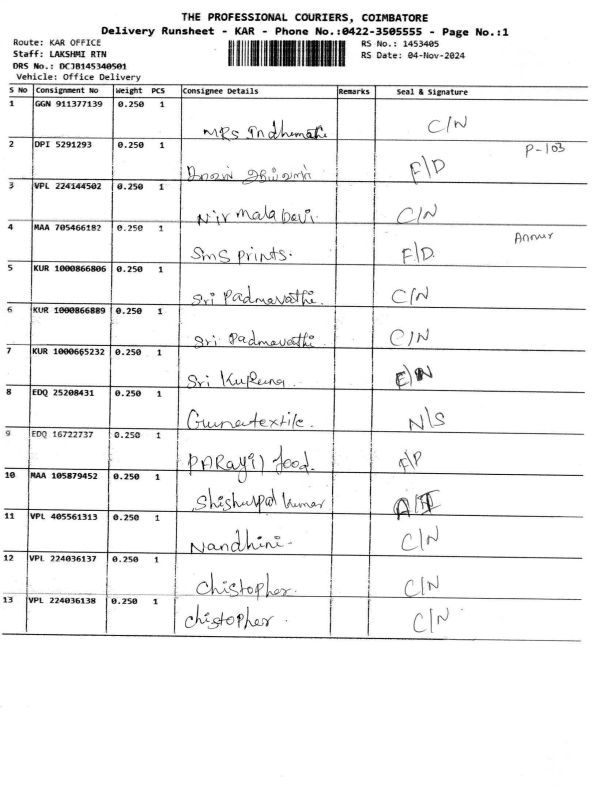 THE PROFESSIONAL COURIERS, COIMBATORE
Delivery Runsheet - KAR - Phone No.:0422-3505555 - Page No.:1
Route: KAR OFFICE RS No.: 1453405
Staff: LAKSHMI RTN RS Date: 04-Nov-2024
DRS No.: DCJB145340501
Vehicle: Office Delivery
S No Consignment No Weight PCS Consignee Details Remarks Seal & Signature
1 GGN 911377139 0.250 1
MRS Indhumathi C/N
2 DPI 5291293 0.250 1 P-103
F/D
3 VPL 224144502 0.250 1
Nirmala Devi. C/N
4 MAA 705466182 0.250 1
Sms prints. F/D.
5 KUR 1000866806 0.250 1
Sri Padmavathi. C/N
6 KUR 1000866889 0.250 1
Sri Padmavathi. C/N
7 KUR 1000665232 0.250 1
Sri
8 EDQ 25208431 0.250 1
Gunatextile. N/S
9 EDQ 16722737 0.250 1
PARayil food. F/D
10 MAA 105879452 0.250 1
Shishupal kumar
11 VPL 405561313 0.250 1
Nandhini. C/N
12 VPL 224036137 0.250 1
Chistopher. C/N
13 VPL 224036138 0.250 1
Chistopher. C/N